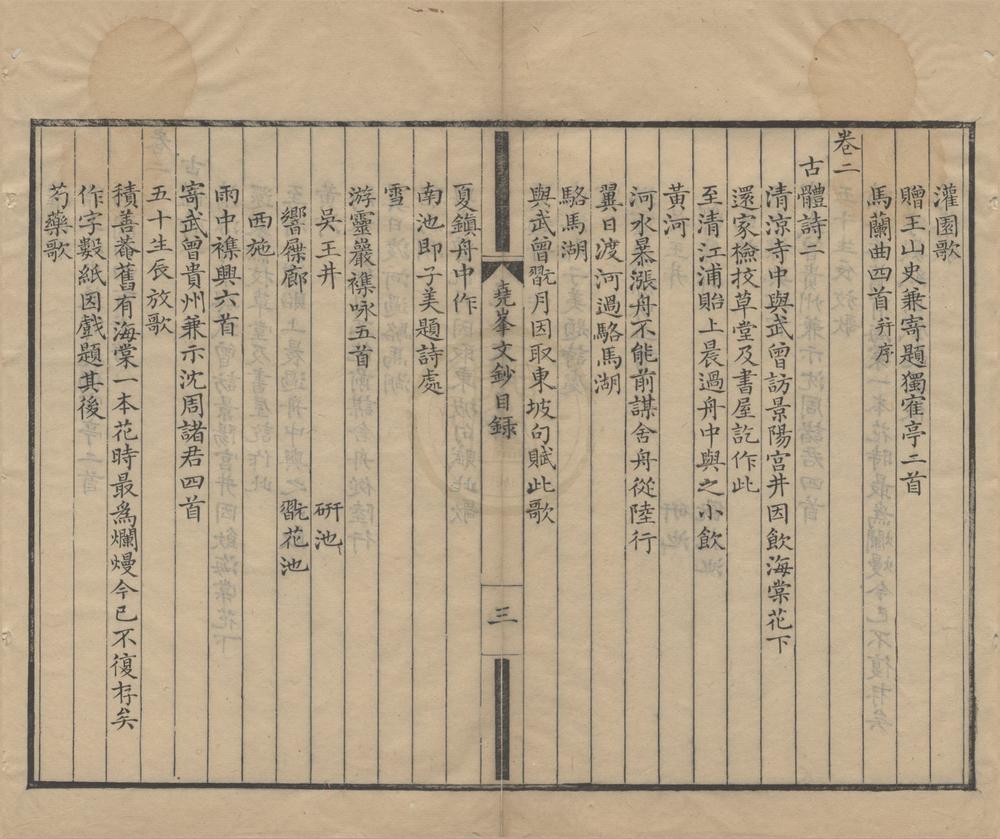 灌園歌
贈王山史兼寄題獨寉亭二首
馬蘭曲四首并序
卷二
古體詩二
清涼寺中與武曾訪景陽宮井因飲海棠花下
還家檢技草堂及書屋訖作此
至清江浦貽上晨過舟中與之小飲
黃河
河水暴漲舟不能前謀舍舟從陸行
翼日渡河過駱馬湖
駱馬湖
與武曾翫月因取東坡句賦此歌
堯峯文鈔目録
三
夏鎮舟中作
南池即子美題詩處
雪
游靈巖襍咏五首
吳王井　硏池
響屧廊　翫花池
西施
雨中襍興六首
寄武曾貴州兼示沈周諸君四首
五十生辰放歌
積善菴舊有海棠一本花時最爲爛熳今已不復存矣
作字數紙因戲題其後
芍藥歌